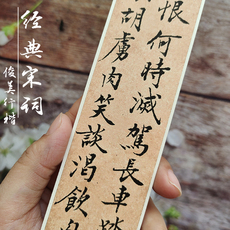 恨何時滅駕長車踏
胡虜肉笑談渴飲
经典宋词
俊美行楷